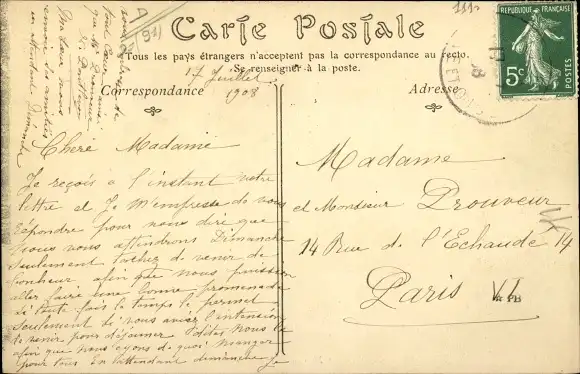 111
A
(91)
Carte Postale
Tous les pays étrangers n'acceptent pas la correspondance au recto.
Se renseigner à la poste.
Correspondance
Adresse
RÉPUBLIQUE FRANÇAISE
5c
POSTES
17 Juillet
1908
Chère Madame
Je reçois a l'instant votre
lettre et Je M'empresse de vous
répondre pour vous dire que
nous vous attendrons Dimanche
seulement tachez de venir de
bonheur afin que nous puissions
aller faire une bonne promenade
si toute fois le temps le permet
Seulement si vous aviez l'intention
de venir pour déjeuner dites Nous le
afin que nous ayons de quoi manger
pour tous En attendant dimanche Je
Madame
et Monsieur Drouveur
14 Rue de l'Echaudé 14
Paris VI